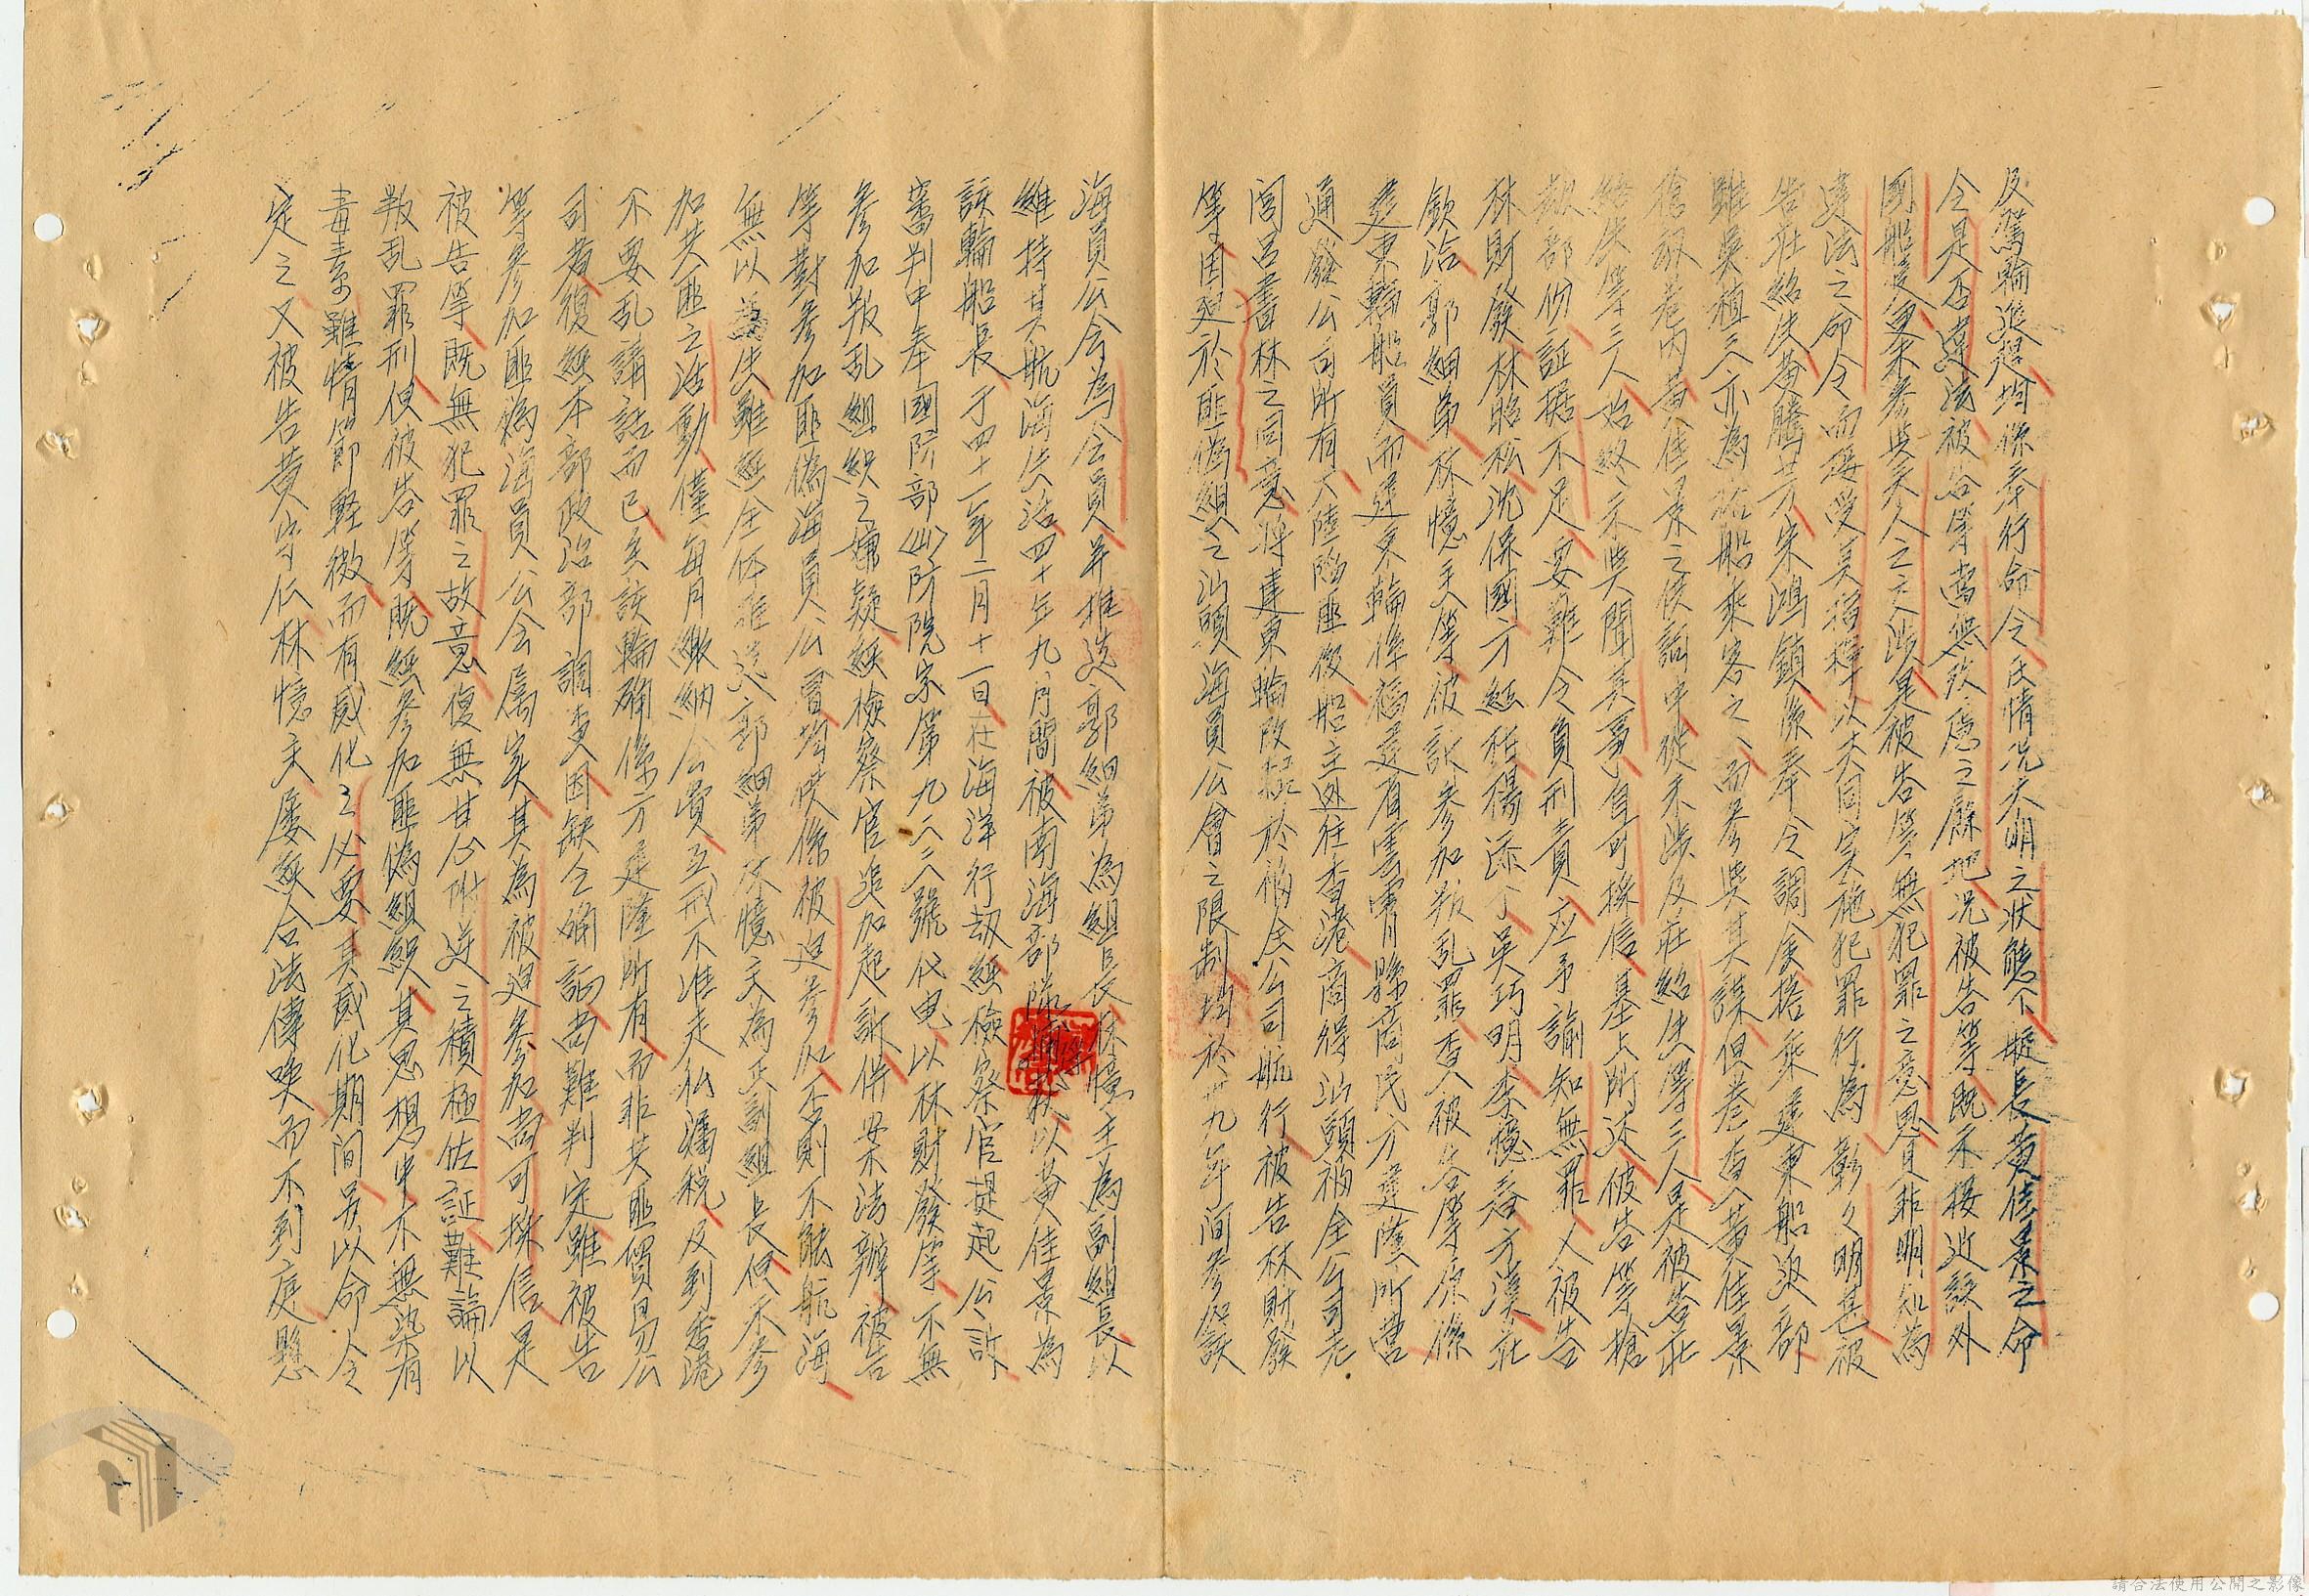 及駕輪追趕均係奉行命令其情況不明之狀態下艇長黃佳景之命
令是否違法被告等當無考慮之餘地況被告等既未接近該外
國船隻更未參與美人之交涉是被告等無犯罪之意思且非明知為
違法之命令而接受其指揮以共同實施犯罪行為彰彰明甚被
告莊紹佐黃騰芳朱鴻鎮係奉令調金塔乘建東船返部
雖吳植三亦為船乘客之一而參與其謀但卷查黃佳景
搶劫卷內黃佳景之供詞中從未涉及莊紹佐等三人是被告莊
紹佐等三人始終未與聞其事自可採信基上所述被告等搶
劫部份証據不足要難令負刑責应予諭知無罪又被告
林財發林昭松沈保國方經旺楊添丁吳巧明李憶春方漢莊
欽治郭細弟林憶主等被訴參加叛乱罪查被告等原係
建東輪船員而建東輪係福建省雲霄縣商民方建隆所營
通發公司所有大陸陷匪後船主逃往香港商得汕頭福全公司老
闆呂書林之同意將建東輪改掛於福全公司航行被告林財發
等因迫於匪偽組之汕頭海員公會之限制均於卅九年间參加該
海員公会為会員并推选郭細弟為組長林憶主為副組長以
維持其航海生活四十年九月間被南海部隊捕獲以黃佳景為
該輪船長于四十一年二月十一日在海洋行劫經檢察官提起公訴
審判中奉國防部(42)防院宗第九二二號代电以林財發等不無
參加叛乱組织之嫌疑經檢察官追加起訴併案法辦被告
等對參加匪偽海員公會均供係被迫參加否則不能航海
無以為生雖經全体推选郭細弟林憶主為正副組長但不參
加共匪之活動僅每月繳納公費互戒不准走私瞞稅及到香港
不要乱講話而已矣該輪確係方建隆所有而非共匪貿易公
司者復經本部政治部調查因缺乏确証尚難判定雖被告
等參加匪偽海員公会属实其為被迫參加尚可採信是
被告等既無犯罪之故意復無甘心附逆之積極佐証難論以
叛乱罪刑但被告等既經參加匪偽組織其思想中不無染有
毒素雖情節輕微而有感化之必要其感化期间另以命令
定之又被告黃守仁林憶天屡經合法傳喚而不到庭懸
請合法使用公開之影像